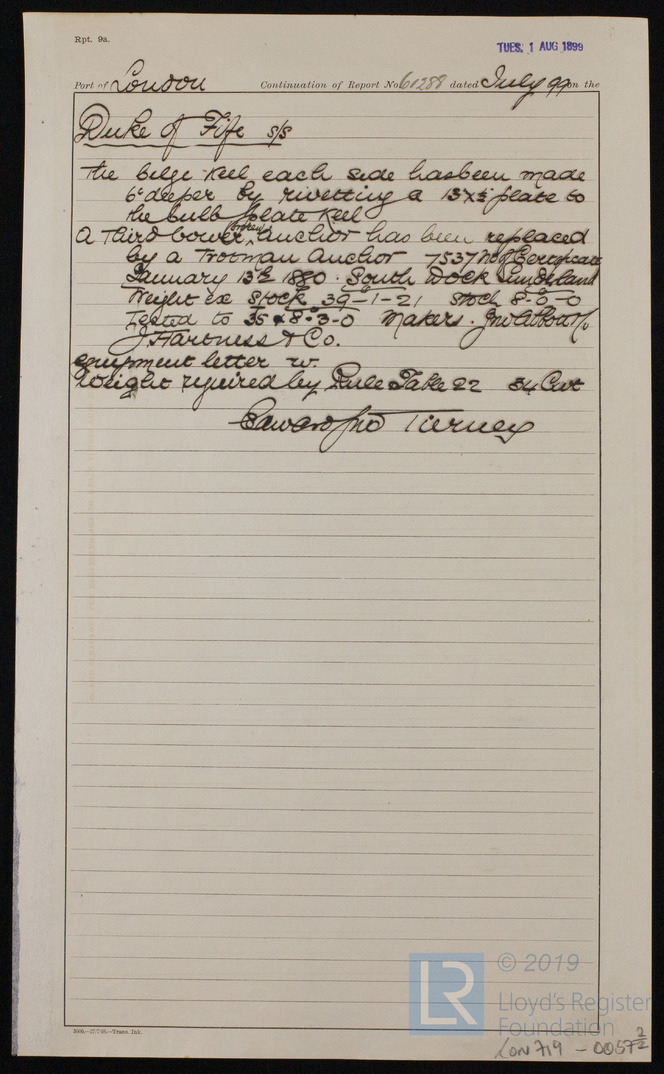 Rpt. 9a.
TUES. 1 AUG 1899
Port of London Continuation of Report No 61288 dated July 99 on the
Duke of Fife s/s
The belge keel each side has been made
6" deeper by rivetting a 13 x ½ plate to
the bulb plate keel
broken
A Third bower anchor has been replaced
by a Trotman Anchor 7537 No of Certificate
January 13th 1880. South Dock Sunderland
Weight ex Stock 39-1-21 Stock 8-0-0
Tested to 35-8-3-0 Makers. Jno Abbot & Co
J. Hartness & Co.
equipment letter w.
Weight required by Rule Table 22 34 Cwt
Edward Jno Tierney
© 2019
LR
Lloyd's Register
Foundation
LON 719 - 0057 2/2